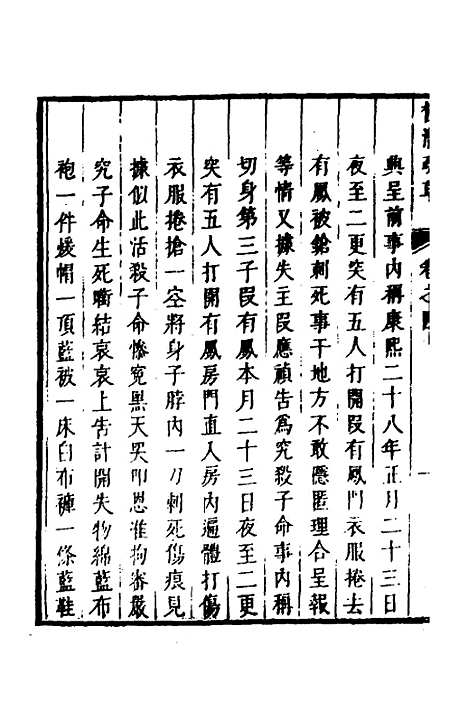 卷之四
興呈前事內稱康熙二十八年正月二十三日
夜至二更突有五人打開段有鳳門衣服捲去
有鳳被鎗刺死事干地方不敢隱匿理合呈報
等情又據失主段應禎告爲究殺子命事內稱
切身第三子段有鳳本月二十三日夜至二更
突有五人打開有鳳房門直入房內遍體打傷
衣服捲搶一空將身子脖內一刀刺死傷痕見
據似此活殺子命慘寃黑天哭叩恩准拘審嚴
究子命生死啣結哀哀上告計開失物綿藍布
袍一件煖帽一頂藍被一床白布褲一條藍鞋